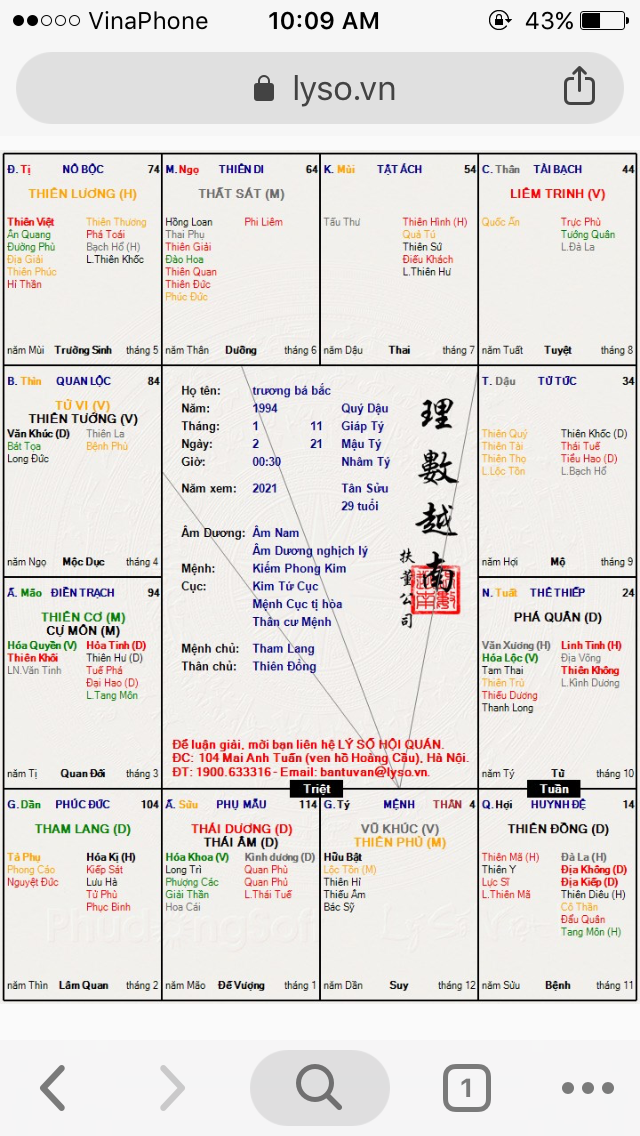 VinaPhone 10:09 AM 43%
lyso.vn
Đ. Tị NÔ BỘC 74
THIÊN LƯƠNG (H)
Thiên Việt
Ân Quang
Đường Phù
Địa Giải
Thiên Phúc
Hỉ Thần
Thiên Thương
Phá Toái
Bạch Hổ (H)
L.Thiên Khốc
năm Mùi Trường Sinh tháng 5
M. Ngọ THIÊN DI 64
THẤT SÁT (M)
Hồng Loan
Thai Phụ
Thiên Giải
Đào Hoa
Thiên Quan
Thiên Đức
Phúc Đức
Phi Liêm
năm Thân Dưỡng tháng 6
K. Mùi TẬT ÁCH 54
Tấu Thư
Thiên Hình (H)
Quả Tú
Thiên Sứ
Điếu Khách
L.Thiên Hư
năm Dậu Thai tháng 7
C. Thân TÀI BẠCH 44
LIÊM TRINH (V)
Quốc Ấn
Trực Phù
Tướng Quân
L.Đà La
năm Tuất Tuyệt tháng 8
B. Thìn QUAN LỘC 84
TỬ VI (V)
THIÊN TƯỚNG (V)
Văn Khúc (D)
Bát Tọa
Long Đức
Thiên La
Bệnh Phù
năm Ngọ Mộc Dục tháng 4
Họ tên: trương bá bắc
Năm: 1994 Quý Dậu
Tháng: 1 11 Giáp Tý
Ngày: 2 21 Mậu Tý
Giờ: 00:30 Nhâm Tý
Năm xem: 2021 Tân Sửu
29 tuổi
Âm Dương: Âm Nam
Âm Dương nghịch lý
Mệnh: Kiếm Phong Kim
Cục: Kim Tứ Cục
Mệnh Cục tị hòa
Thân cư Mệnh
Mệnh chủ: Tham Lang
Thân chủ: Thiên Đồng
理數越南
扶董公司
Để luận giải, mời bạn liên hệ LÝ SỐ HỘI QUÁN.
ĐC: 104 Mai Anh Tuấn (ven hồ Hoàng Cầu), Hà Nội.
ĐT: 1900.633316 - Email: bantuvan@lyso.vn.
T. Dậu TỬ TỨC 34
Thiên Quý
Thiên Tài
Thiên Thọ
L.Lộc Tồn
Thiên Khốc (D)
Thái Tuế
Tiểu Hao (D)
L.Bạch Hổ
năm Hợi Mộ tháng 9
Ấ. Mão ĐIỀN TRẠCH 94
THIÊN CƠ (M)
CỰ MÔN (M)
Hóa Quyền (V)
Thiên Khôi
LN.Văn Tinh
Hỏa Tinh (D)
Thiên Hư (D)
Tuế Phá
Đại Hao (D)
L.Tang Môn
năm Tị Quan Đới tháng 3
N. Tuất THÊ THIẾP 24
PHÁ QUÂN (D)
Văn Xương (H)
Hóa Lộc (V)
Tam Thai
Thiên Trù
Thiếu Dương
Thanh Long
Linh Tinh (H)
Địa Võng
Thiên Không
L.Kình Dương
năm Tý Tử tháng 10
Triệt
Tuần
G. Dần PHÚC ĐỨC 104
THAM LANG (D)
Tả Phụ
Phong Cáo
Nguyệt Đức
Hóa Kị (H)
Kiếp Sát
Lưu Hà
Tử Phù
Phục Binh
năm Thìn Lâm Quan tháng 2
Ấ. Sửu PHỤ MẪU 114
THÁI DƯƠNG (D)
THÁI ÂM (D)
Hóa Khoa (V)
Long Trì
Phượng Các
Giải Thần
Hoa Cái
Kình dương (D)
Quan Phù
Quan Phủ
L.Thái Tuế
năm Mão Đế Vượng tháng 1
G. Tý MỆNH THÂN 4
VŨ KHÚC (V)
THIÊN PHỦ (M)
Hữu Bật
Lộc Tồn (M)
Thiên Hỉ
Thiếu Âm
Bác Sỹ
năm Dần Suy tháng 12
Q. Hợi HUYNH ĐỆ 14
THIÊN ĐỒNG (D)
Thiên Mã (H)
Thiên Y
Lực Sĩ
L.Thiên Mã
Đà La (H)
Địa Không (D)
Địa Kiếp (D)
Thiên Diêu (H)
Cô Thần
Đẩu Quân
Tang Môn (H)
năm Sửu Bệnh tháng 11
1